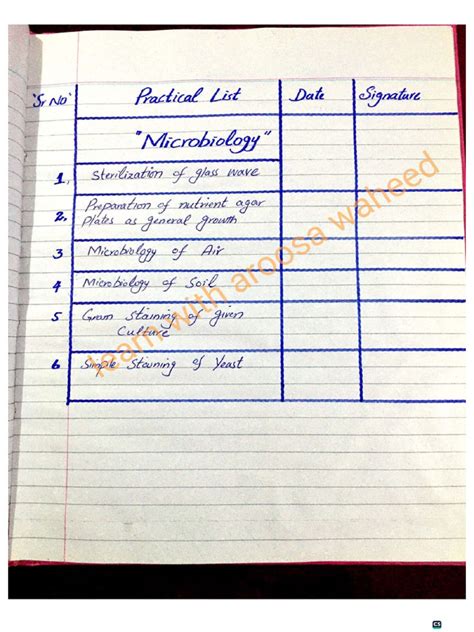 'Sr No' Practical List Date Signature
"Microbiology"
1. Sterilization of glass wave
2. Preparation of nutrient agar
plates as general growth
3 Microbiology of Air
4 Microbiology of Soil
5 Gram Staining of given
Culture
6 Simple Staining of Yeast
learn with aroosa waheed
CS